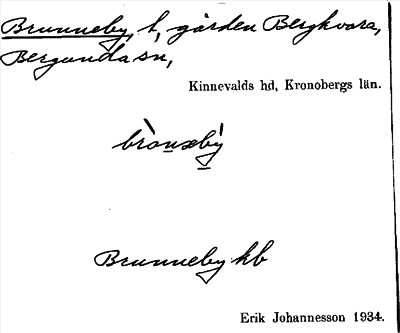 Brunneby, t, gården Bergkvara,
Bergunda sn,
Kinnevalds hd, Kronobergs län.
Brunneby kb
Erik Johannesson 1934.